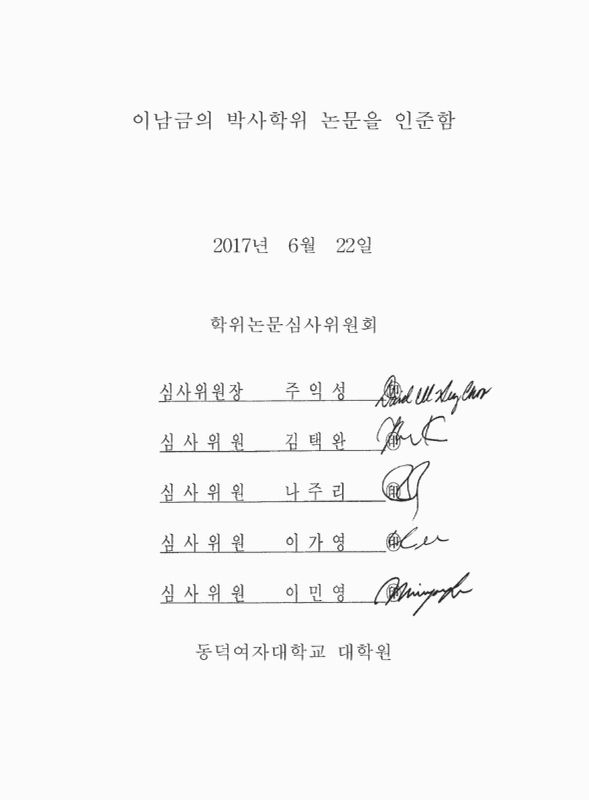 이남금의 박사학위 논문을 인준함
2017년 6월 22일
학위논문심사위원회
심사위원장 주익성 ㊞
심사위원 김택완 ㊞
심사위원 나주리 ㊞
심사위원 이가영 ㊞
심사위원 이민영 ㊞
동덕여자대학교 대학원